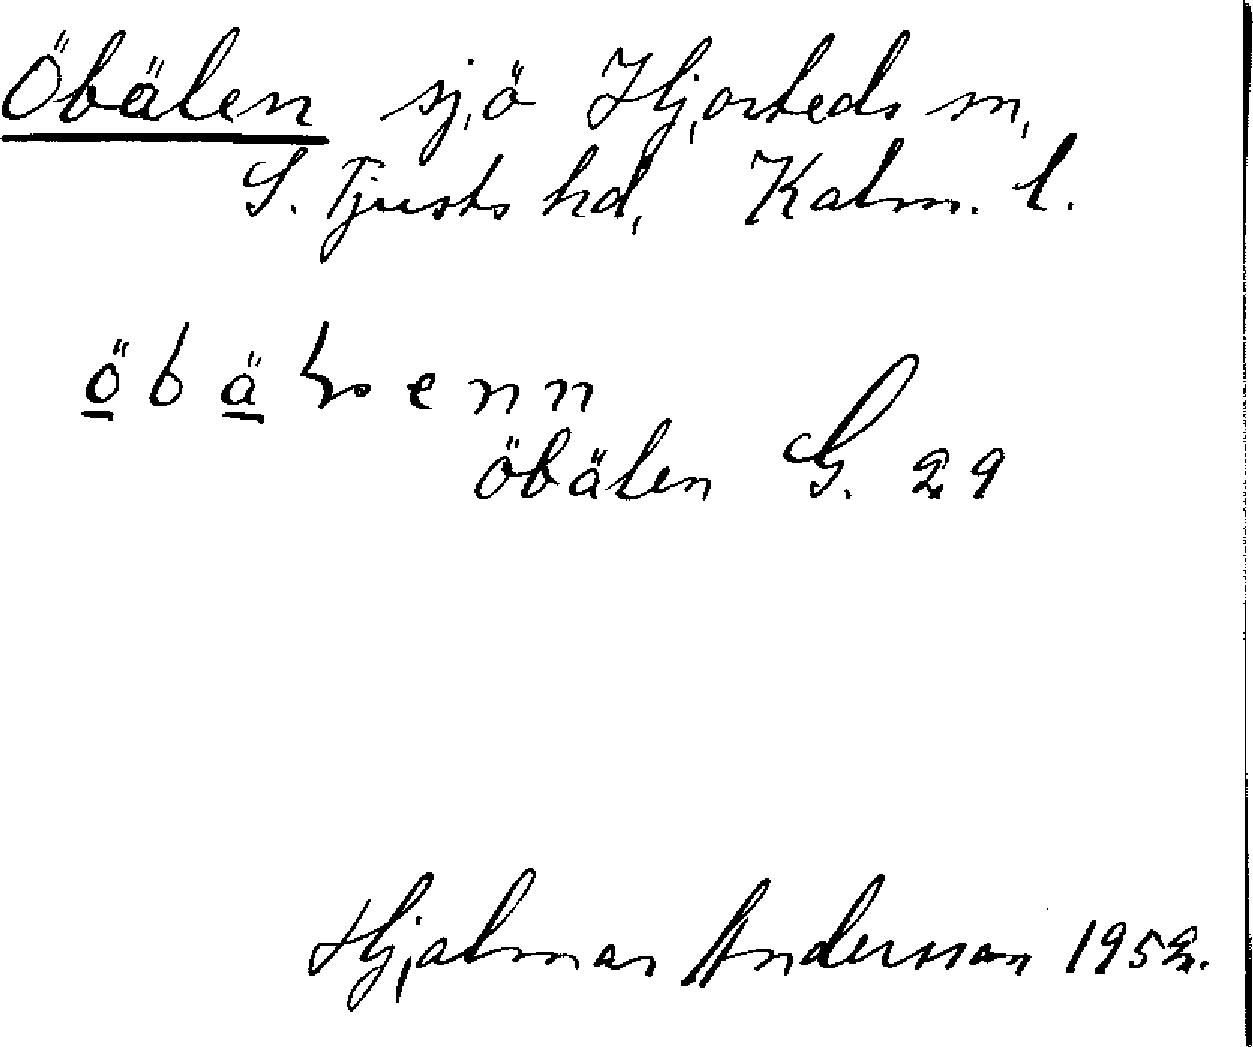 Öbälen sjö Hjorteds sn,
S. Tjusts hd, Kalm. l.
öbälenn
öbälen G. 29
Hjalmar Andersson 1952.